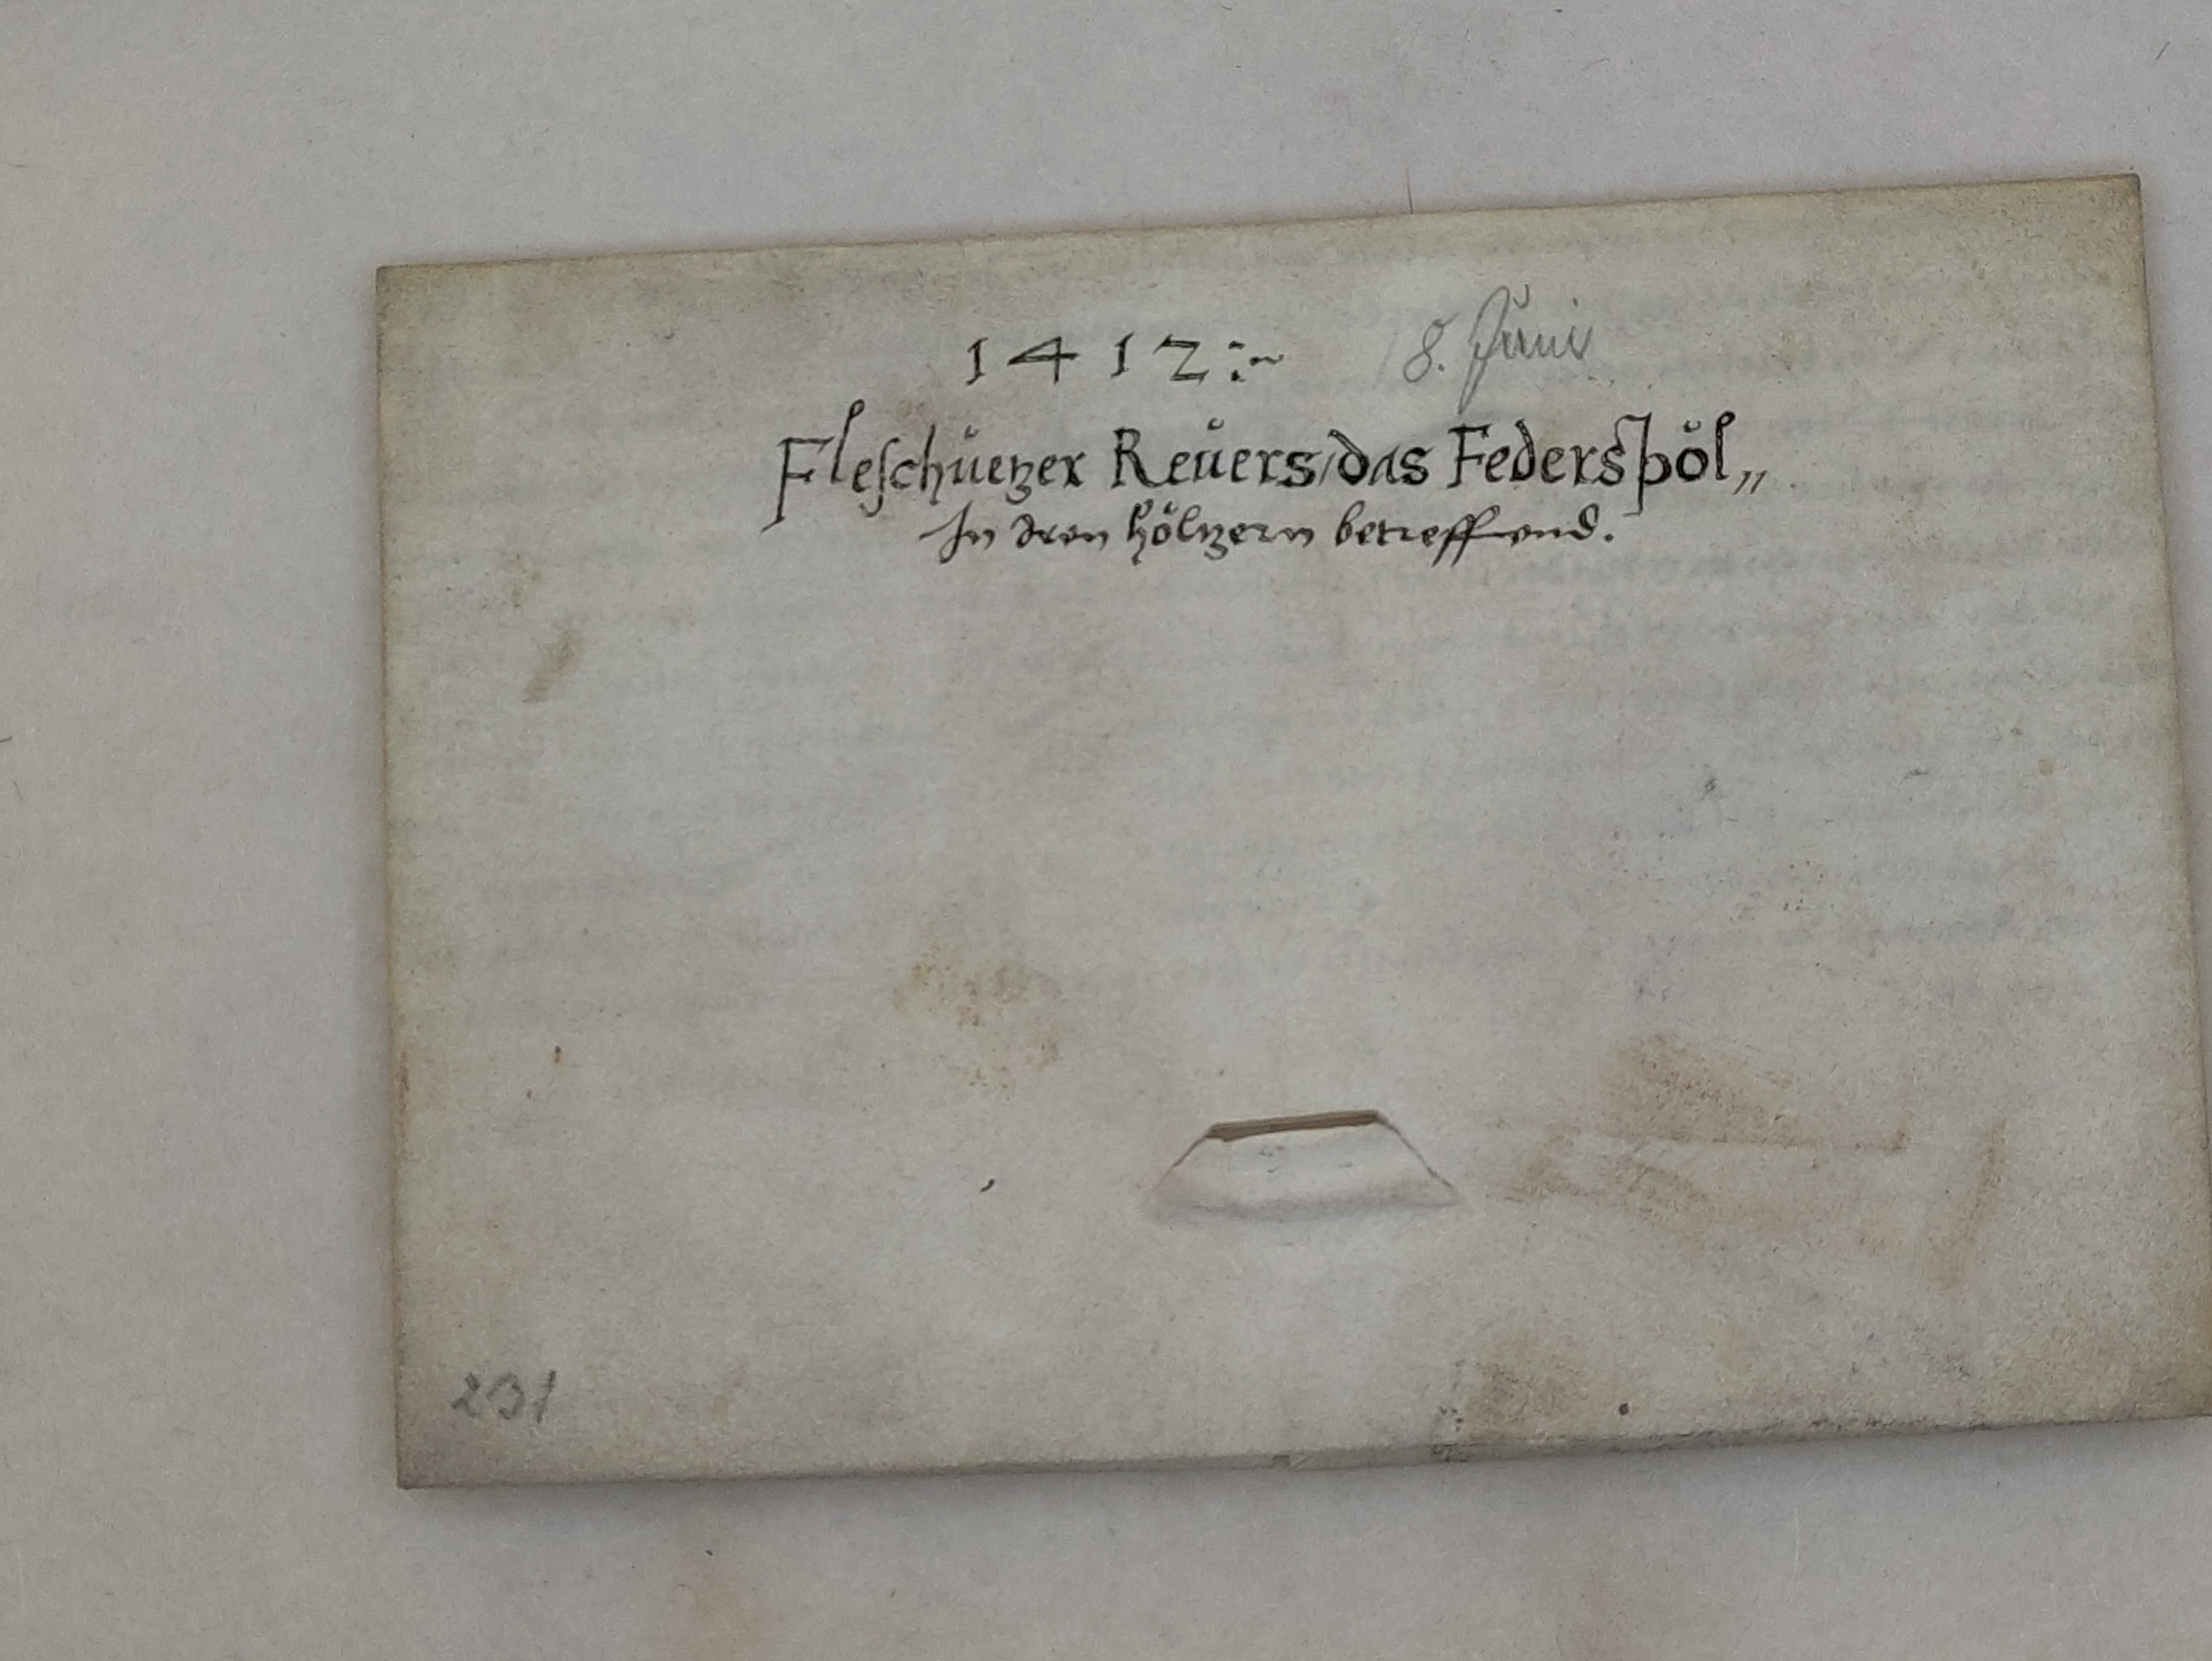 1412:~ 8. Juni
Fleschüetzer Reuers/das Federspöl„
In dren höltzern betreffend.
231